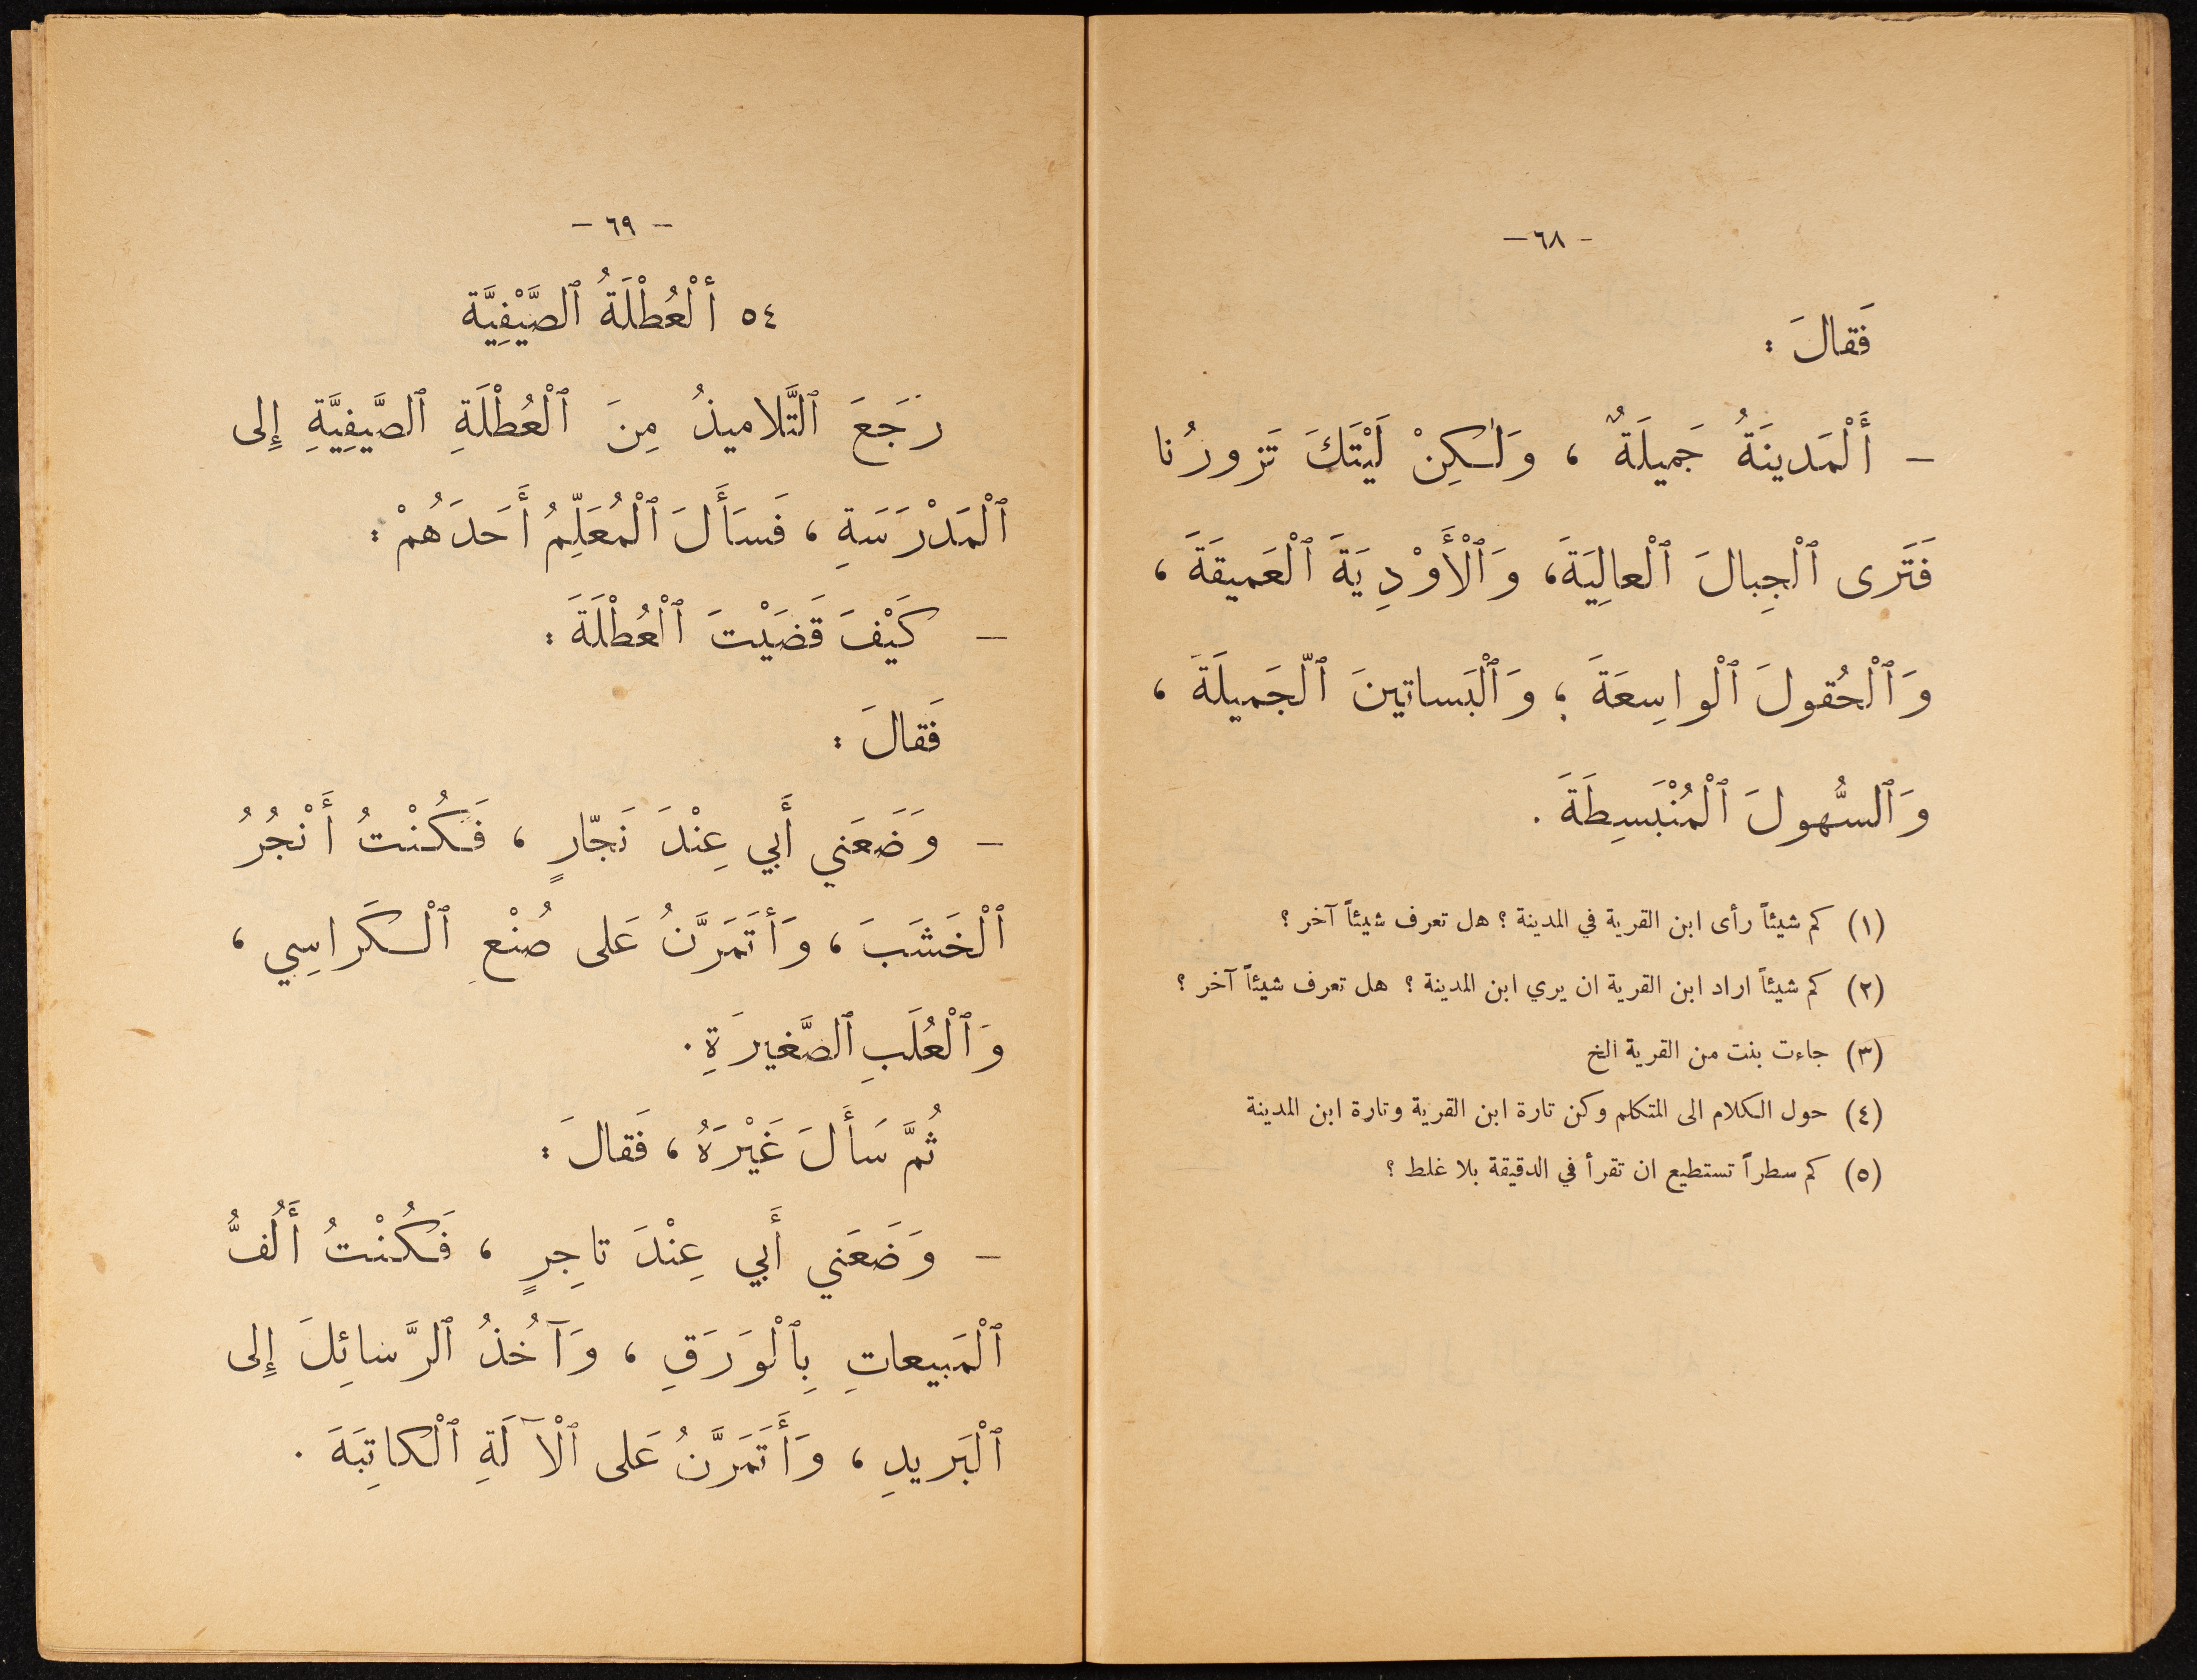 - ٦٨ -
فَقالَ :
- أَلْمَدينَةُ جَميلَةٌ ، وَلٰكِنْ لَيْتَكَ تَزورُنا
فَتَرى ٱلْجِبالَ ٱلْعالِيَةَ، وَٱلْأَوْدِيَةَ ٱلْعَميقَةَ ،
وَٱلْحُقولَ ٱلْواسِعَةَ ؛ وَٱلْبَساتينَ ٱلْجَميلَةَ ،
وَٱلسُّهولَ ٱلْمُنْبَسِطَةَ .
(١) كم شيئاً رأى ابن القرية في المدينة ؟ هل تعرف شيئاً آخر ؟
(٢) كم شيئاً اراد ابن القرية ان يري ابن المدينة ؟ هل تعرف شيئاً آخر ؟
(٣) جاءت بنت من القرية الخ
(٤) حول الكلام الى المتكلم وكن تارة ابن القرية وتارة ابن المدينة
(٥) كم سطراً تستطيع ان تقرأ في الدقيقة بلا غلط ؟
- ٦٩ -
٥٤ أَلْعُطْلَةُ ٱلصَّيْفِيَّة
رَجَعَ ٱلتَّلاميذُ مِنَ ٱلْعُطْلَةِ ٱلصَّيفِيَّةِ إِلى
ٱلْمَدْرَسَةِ ، فَسَأَلَ ٱلْمُعَلِّمُ أَحَدَهُمْ :
- كَيْفَ قَضَيْتَ ٱلْعُطْلَةَ :
فَقالَ :
- وَضَعَني أَبي عِنْدَ نَجّارٍ ، فَكُنْتُ أَنْجُرُ
ٱلْخَشَبَ ، وَأَتَمَرَّنُ عَلى صُنْعِ ٱلْكَراسِي ،
وَٱلْعُلَبِ ٱلصَّغيرَةِ .
ثُمَّ سَأَلَ غَيْرَهُ ، فَقالَ :
- وَضَعَني أَبي عِنْدَ تاجِرٍ ، فَكُنْتُ أَلُفُّ
ٱلْمَبيعاتِ بِٱلْوَرَقِ ، وَآخُذُ ٱلرَّسائِلَ إِلى
ٱلْبَريدِ ، وَأَتَمَرَّنُ عَلى ٱلْآلَةِ ٱلْكاتِبَةَ .